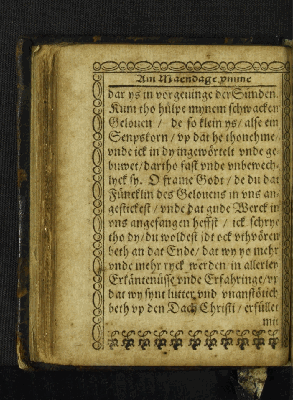 Am Maendage ynnne
dar ys in vorgeuinge der Sünden.
Kum tho hülpe mynem schwacken
Gelouen / de so klein ys / alse ein
Senpkorn / vp dat he thoneme /
vnde ick in dy ingewörtelt vnde ge-
buwet / dartho fast vnde vnbewech-
lyck sy. O frame Godt / de du dat
Füncklin des Gelouens in vns an-
gesticket / vnde dat gude Werck in
vns angefangen heffst / ick schrye
tho dy / du woldest idt ock vthvören
beth an dat Ende / dat wy yo mehr
vnde mehr ryck werden in allerley
Erkäntenüsse vnde Erfahringe / vp
dat wy synt lutter vnd vnanstötich
beth vp den Dach Christi / erfüllet
mit